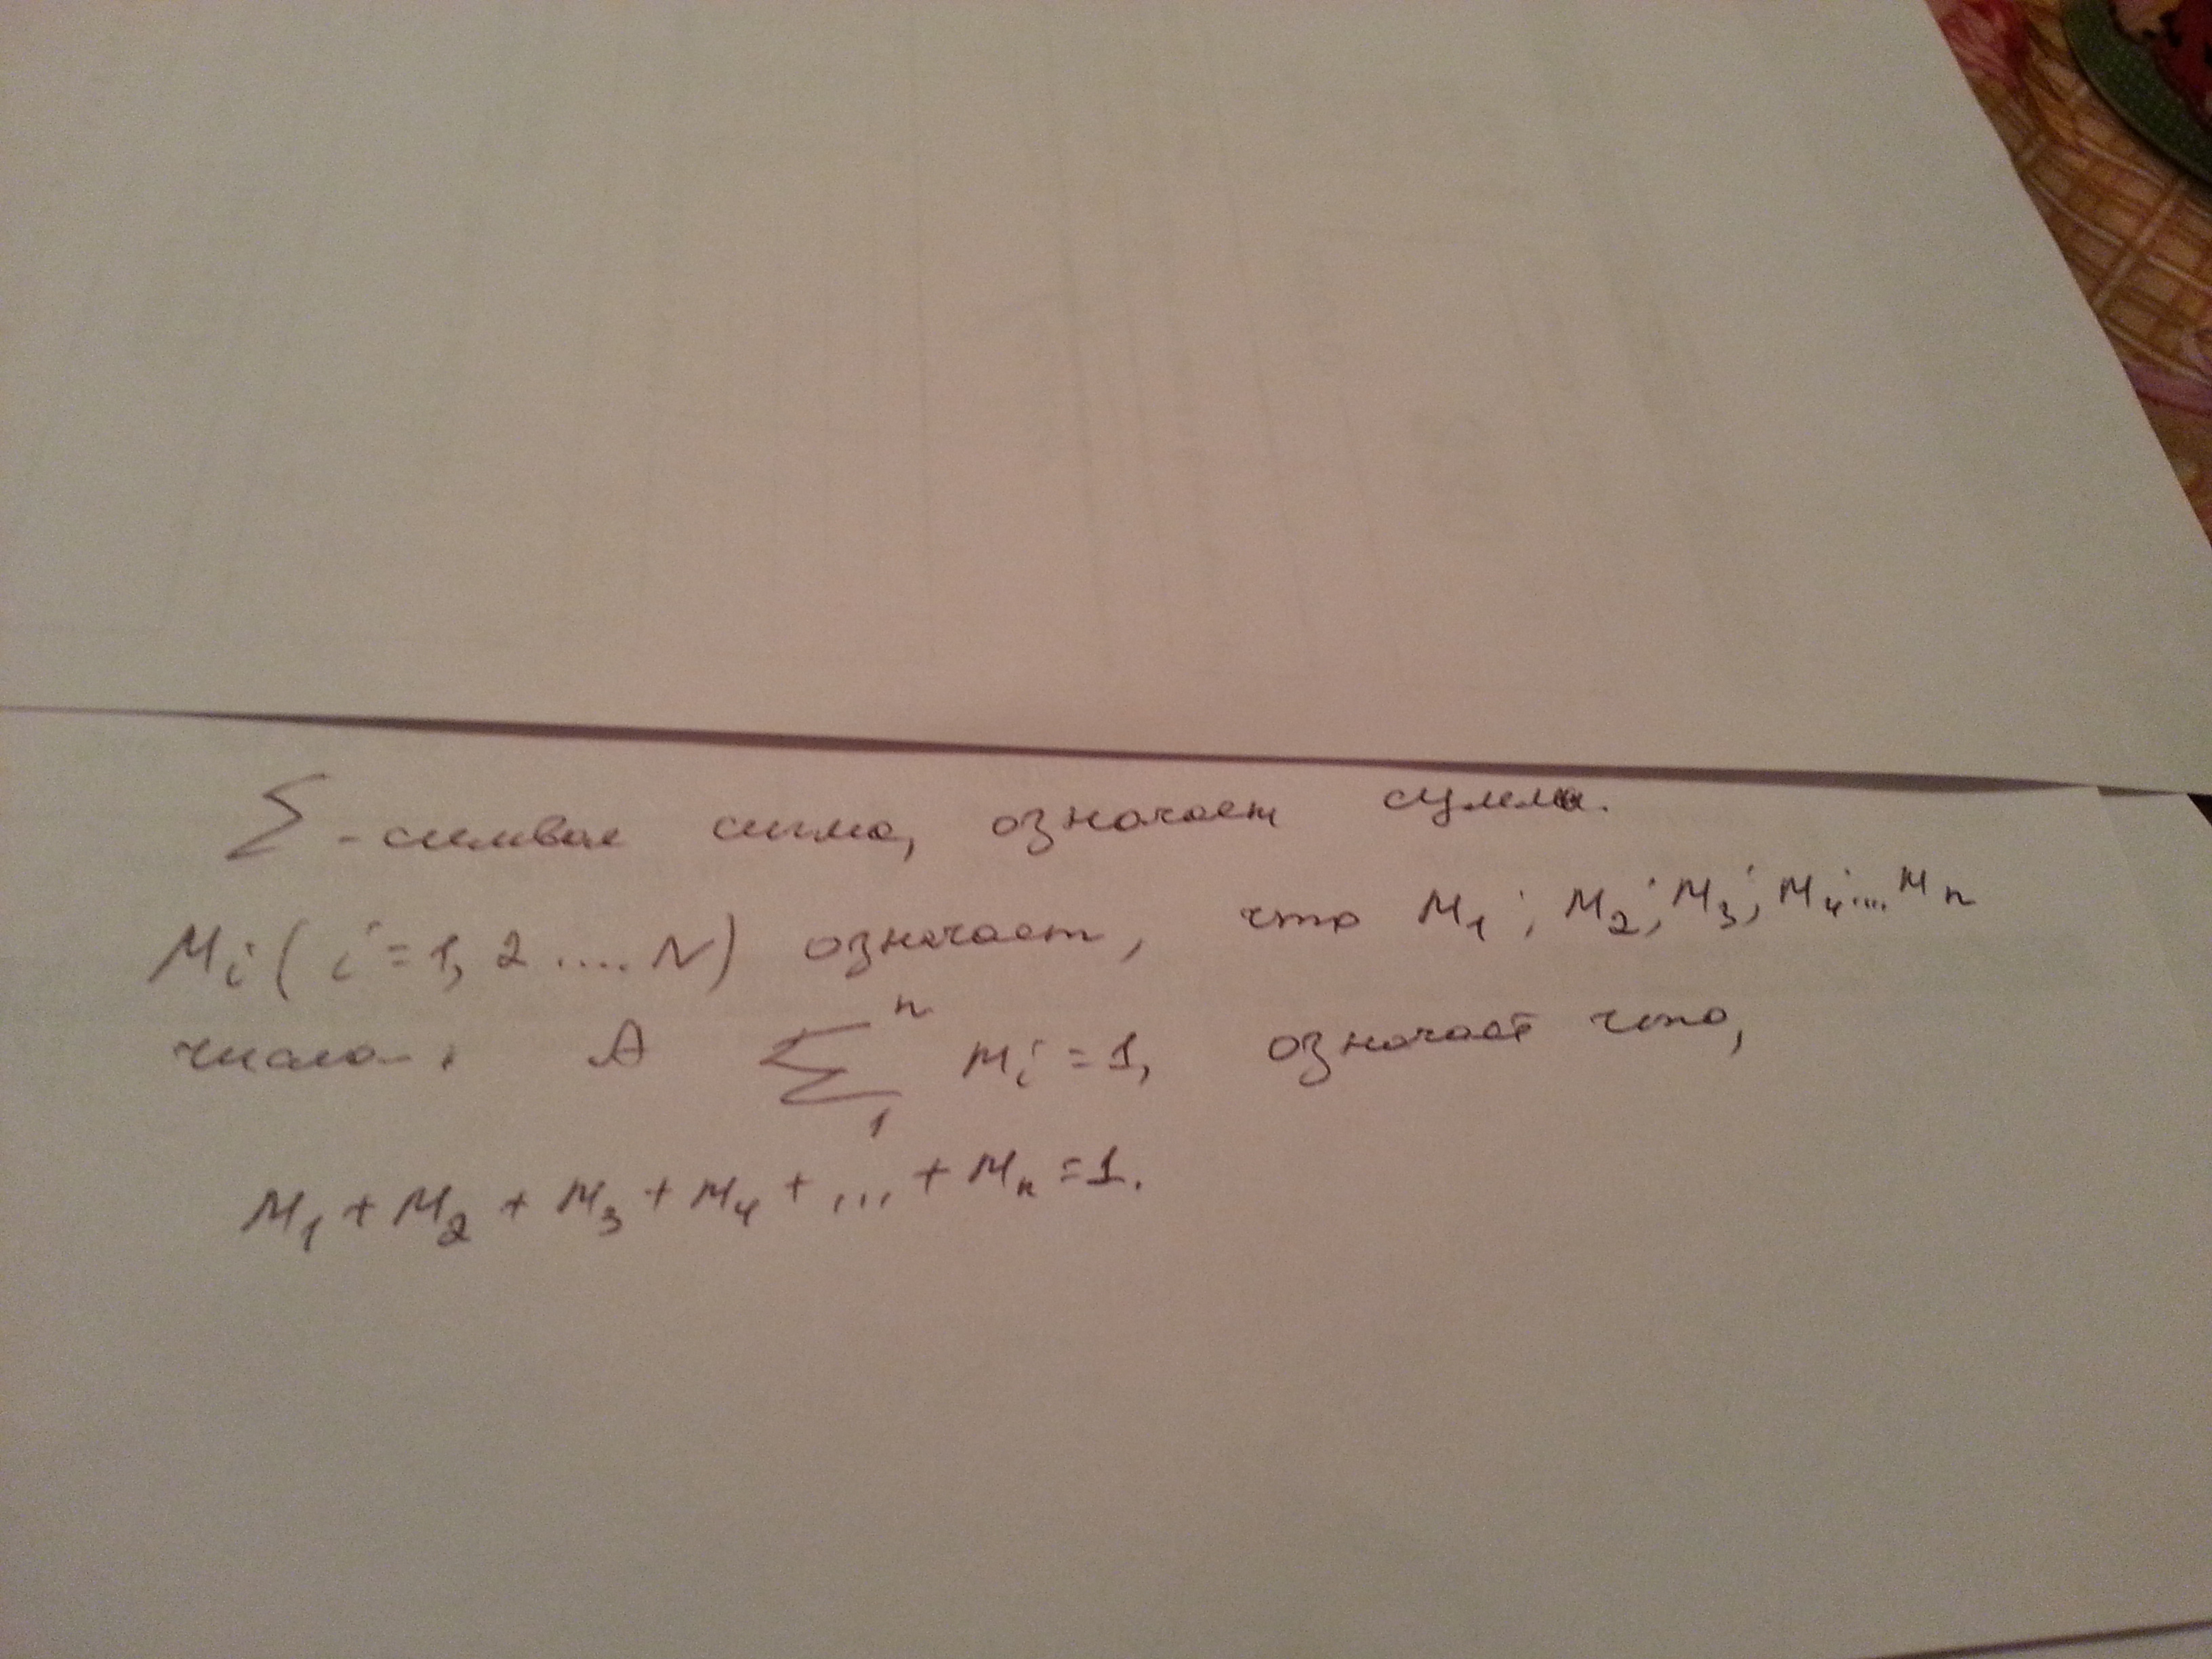 ∑ - символ сигма, означает сумма.
Mi ( i = 1, 2 .... N) означает, что M1; M2; M3; M4.... Mn
числа. А ∑ n 1 Mi = 1, означает что,
M1 + M2 + M3 + M4 + ... + Mn = 1.